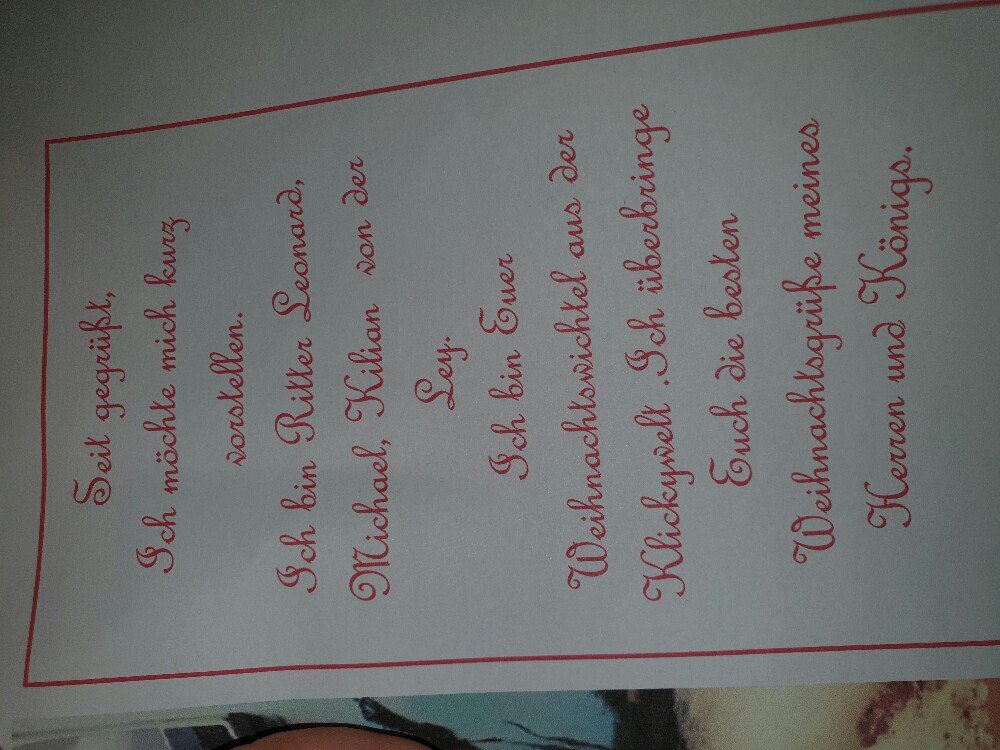 Seit gegrüßt,
Ich möchte mich kurz
vorstellen.
Ich bin Ritter Leonard,
Michael, Kilian von der
Ley.
Ich bin Euer
Weihnachtswichtel aus der
Klickywelt .Ich überbringe
Euch die besten
Weihnachtsgrüße meines
Herren und Königs.